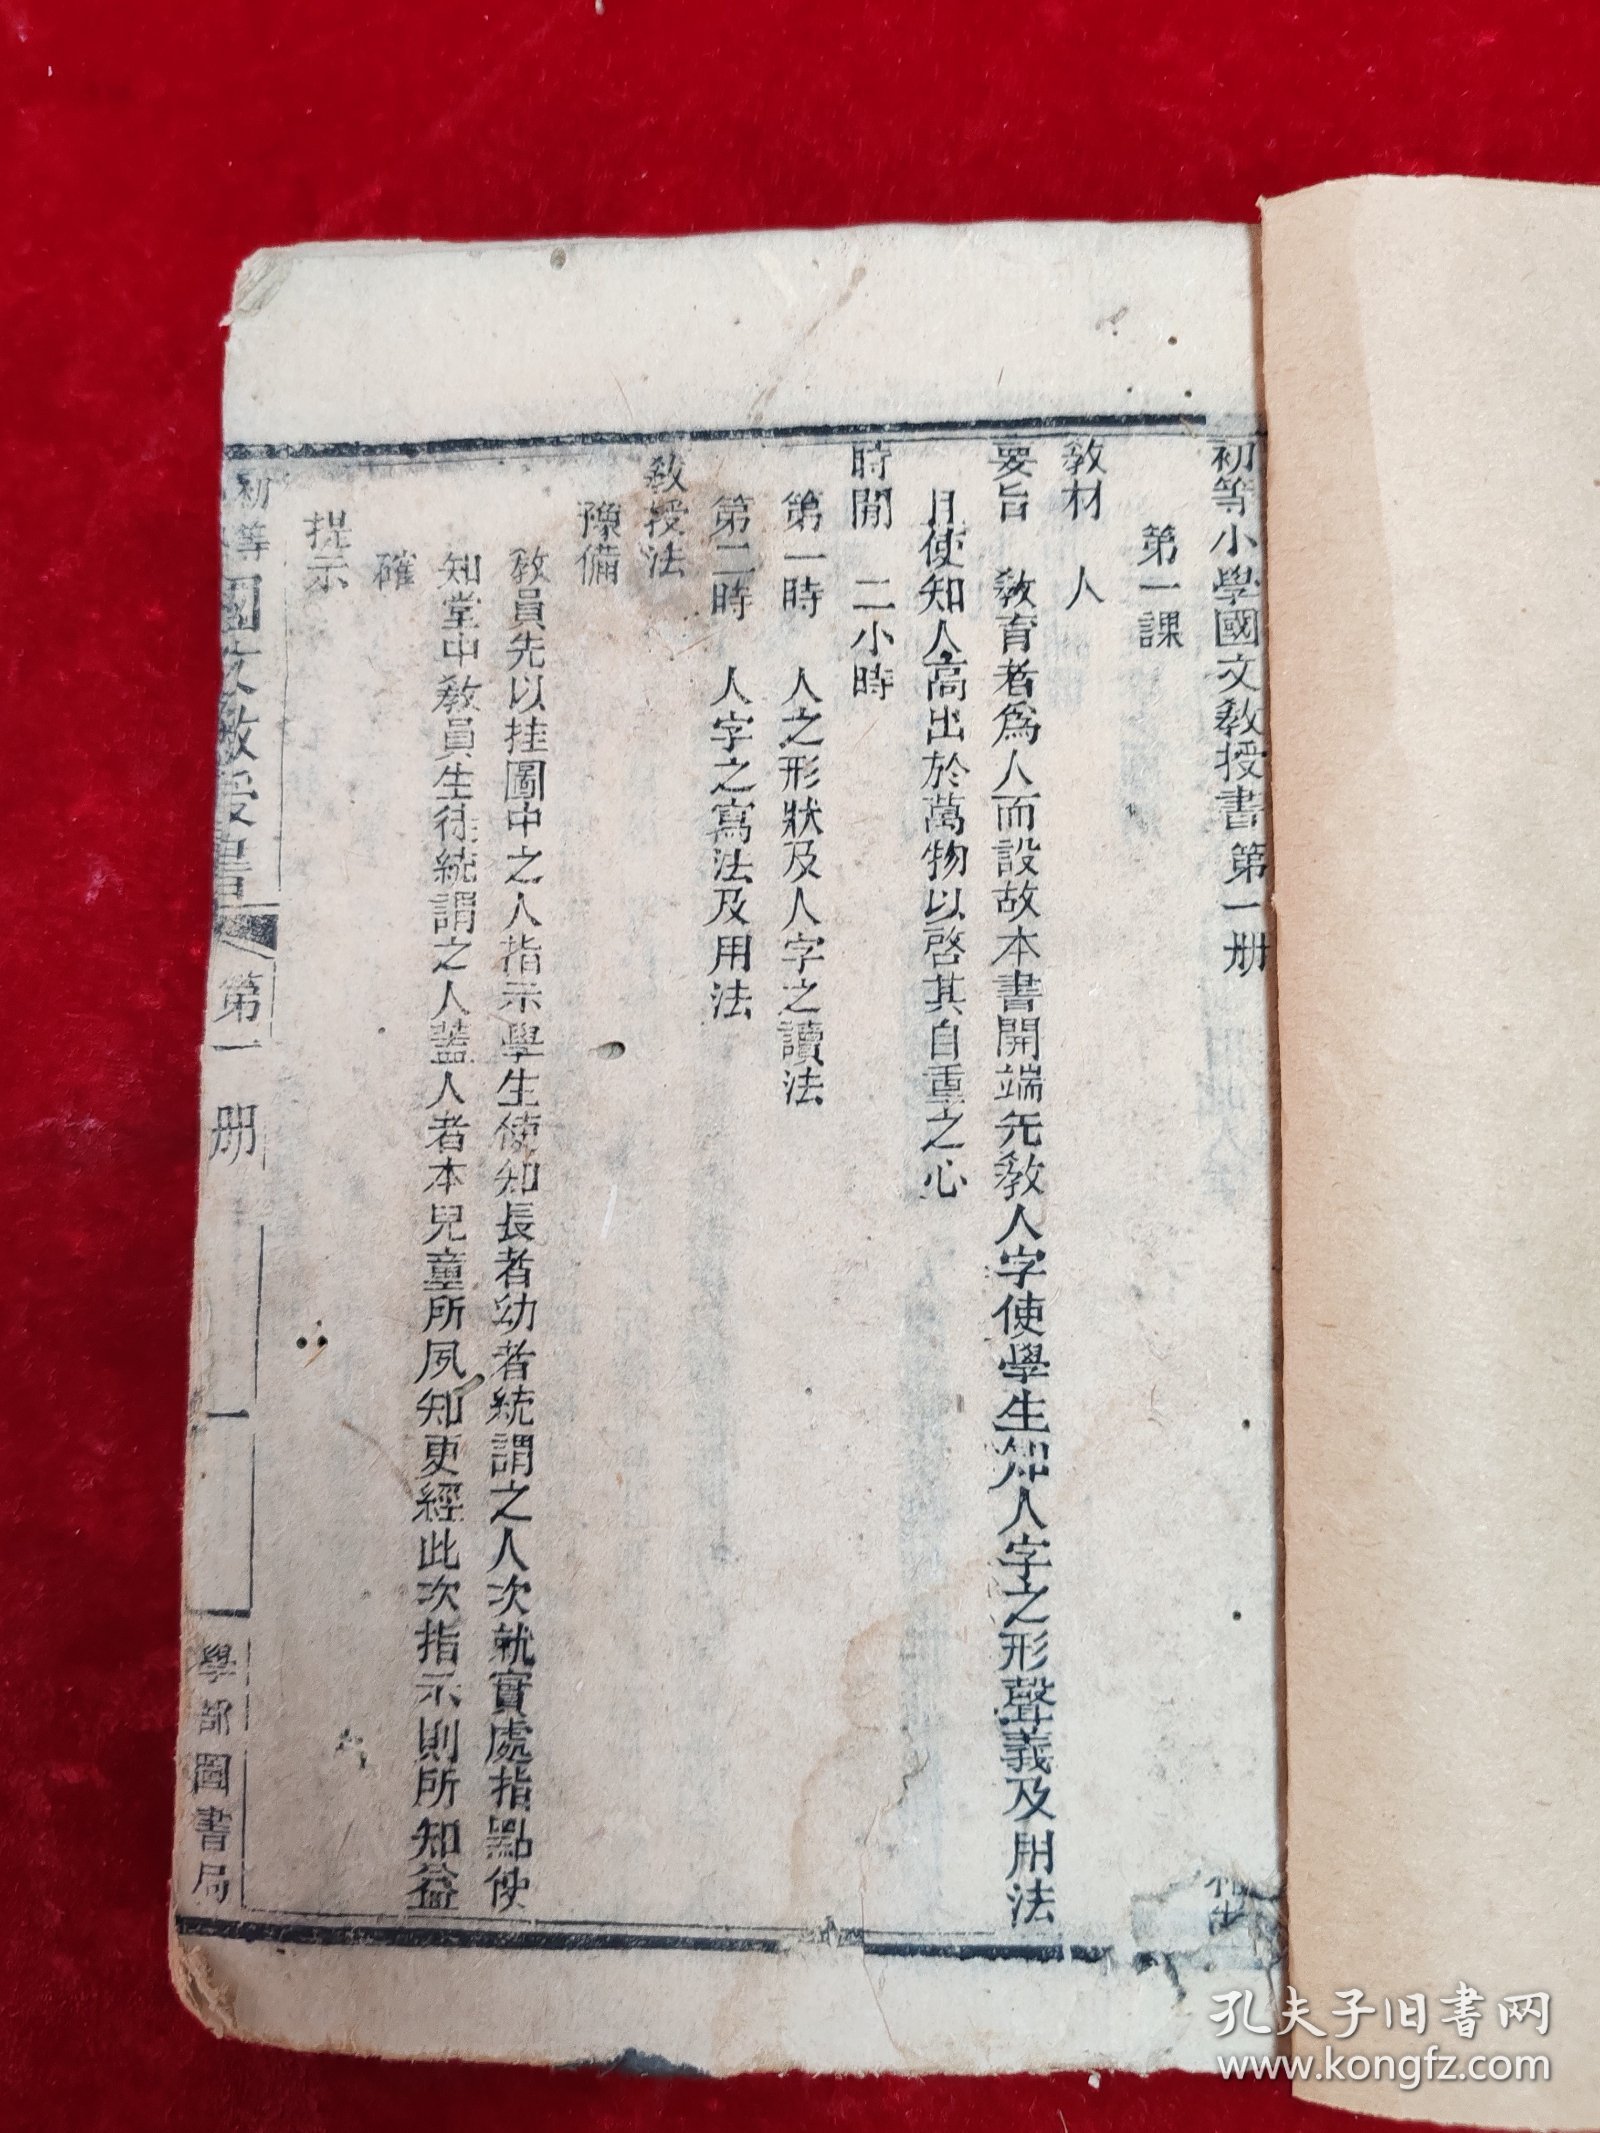 初等小學國文敎授書第一册
第一課
敎材　人
要旨　敎育者爲人而設故本書開端先敎人字使學生知人字之形聲義及用法
且使知人高出於萬物以啓其自重之心
時間　二小時
第一時　人之形狀及人字之讀法
第二時　人字之寫法及用法
敎授法
豫備
敎員先以挂圖中之人指示學生使知長者幼者統謂之人次就實處指點使
知堂中敎員生徒統謂之人蓋人者本兒童所夙知更經此次指示則所知益
確
提示
初等國文敎授書　第一册　一　學部圖書局
孔夫子旧书网
www.kongfz.com